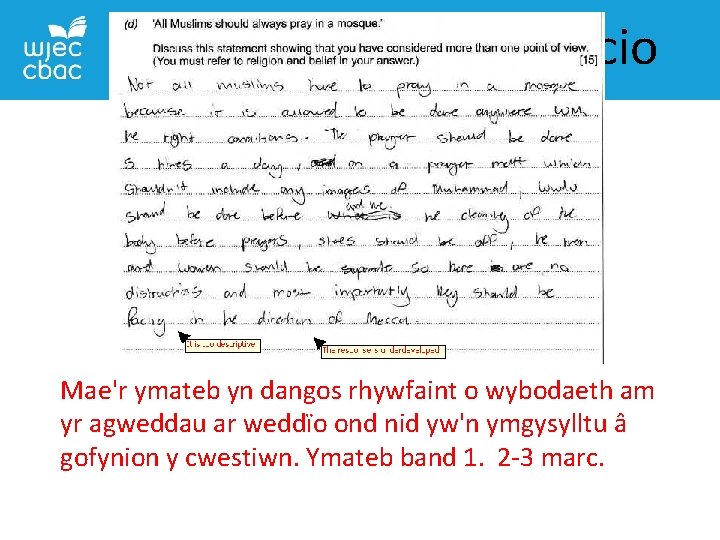 wjec
cbac
cio
(d) 'All Muslims should always pray in a mosque.'
Discuss this statement showing that you have considered more than one point of view.
(You must refer to religion and belief in your answer.) [15]
Not all muslims have to pray in a mosque
because it is allowed to be done anywhere
he right conditions. The prayer should be done
5 times a day, on a prayer matt which
shouldn't include any images of Muhammad, wudu
should be done before and the cleaning of the
body before prayers, shoes should be off, he men
and women should be seperate so here is are no
distractions and most importantly they should be
facing in he direction of Mecca.
It is too descriptive
The response is underdeveloped
Mae'r ymateb yn dangos rhywfaint o wybodaeth am
yr agweddau ar weddïo ond nid yw'n ymgysylltu â
gofynion y cwestiwn. Ymateb band 1. 2-3 marc.